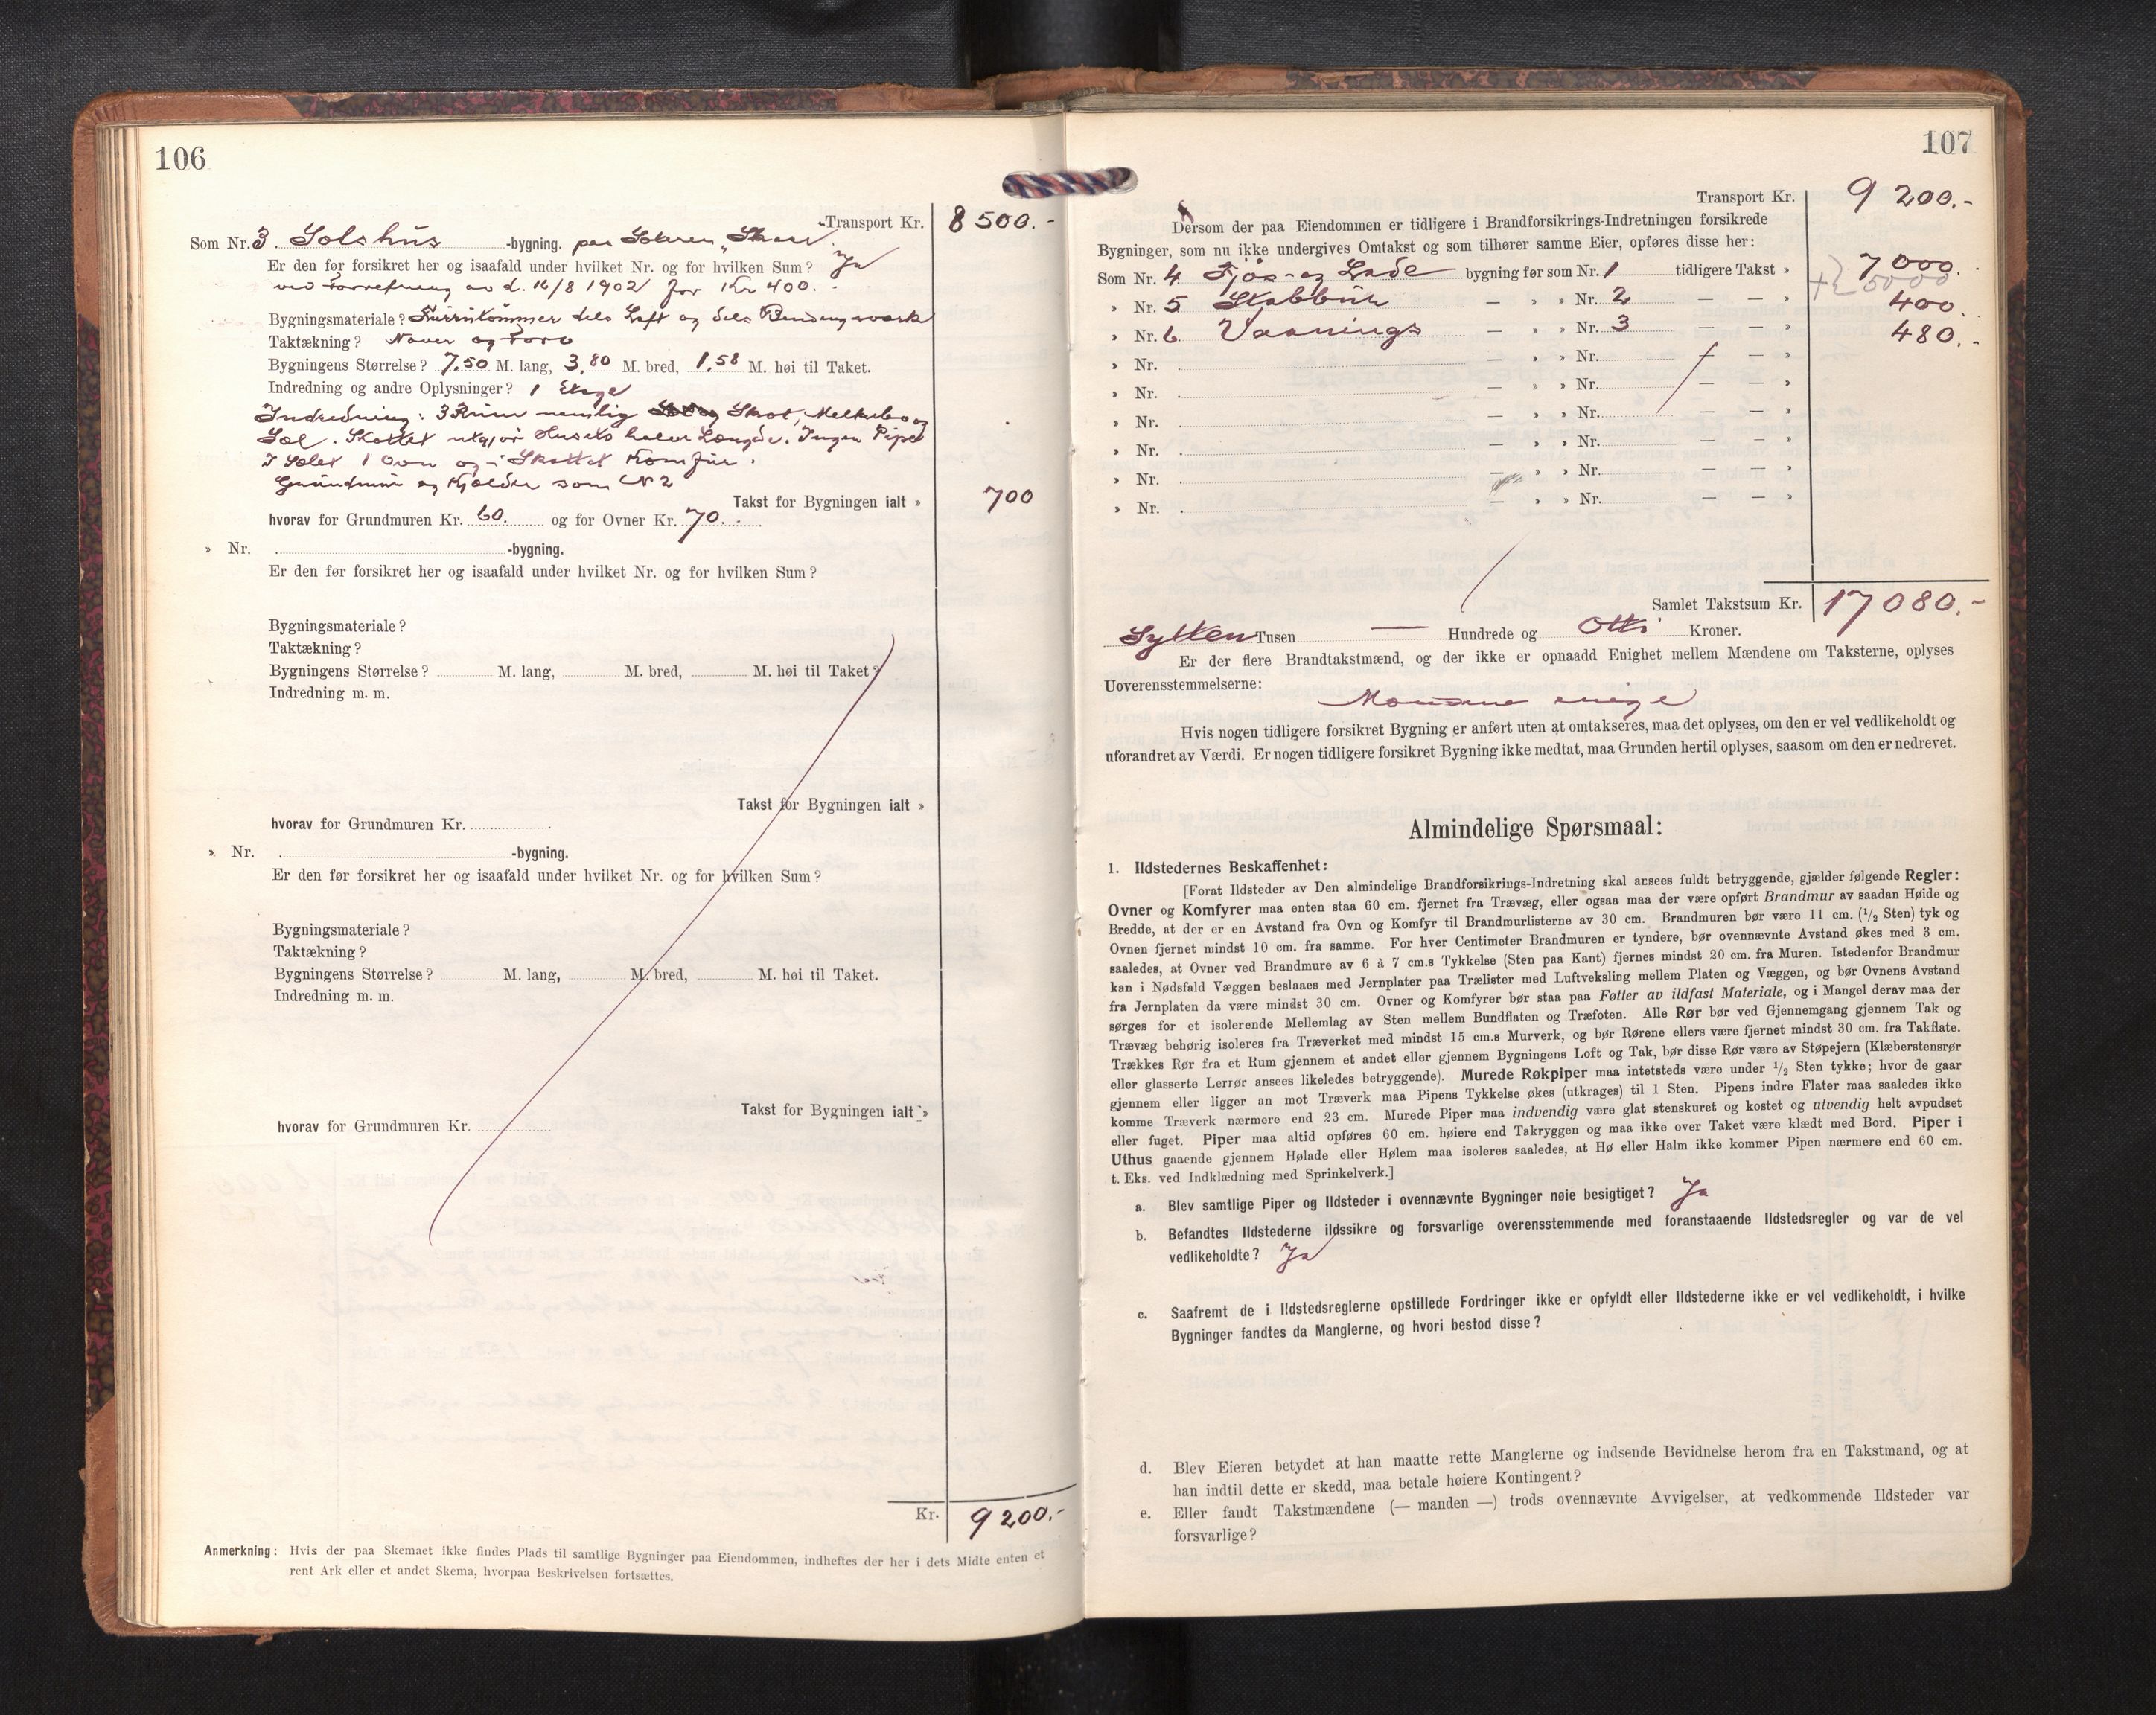 106
Transport Kr. 8 500.-
Som Nr. 3. Solshus -bygning. paa
Er den før forsikret her og isaafald under hvilket Nr. og for hvilken Sum? Ja
ved Forretning av d. 16/8 1902 for Kr 400.
Bygningsmateriale? Furutømmer dels Laft og dels Bindingsværk
Taktækning? Næver og Torv
Bygningens Størrelse? 7.50 M. lang, 3,80 M. bred, 1,58 M. høi til Taket.
Indredning og andre Oplysninger? 1 Etage
Indredning: 3 Rum nemlig Skot, Melkebu og
Sel. Skottet utgjør Husets halve Længde. Ingen Pipe
I Selet 1 Ovn og i Skottet Komfur.
Grundmur og Kjelder som N 2
Takst for Bygningen ialt » 700
hvorav for Grundmuren Kr. 60. og for Ovner Kr. 70.
» Nr. -bygning.
Er den før forsikret her og isaafald under hvilket Nr. og for hvilken Sum?
Bygningsmateriale?
Taktækning?
Bygningens Størrelse? M. lang, M. bred, M. høi til Taket?
Indredning m. m.
Takst for Bygningen ialt »
hvorav for Grundmuren Kr.
» Nr. -bygning.
Er den før forsikret her og isaafald under hvilket Nr. og for hvilken Sum?
Bygningsmateriale?
Taktækning?
Bygningens Størrelse? M. lang, M. bred, M. høi til Taket.
Indredning m. m.
Takst for Bygningen ialt »
hvorav for Grundmuren Kr.
Kr. 9 200.-
Anmerkning: Hvis der paa Skemaet ikke findes Plads til samtlige Bygninger paa Eiendommen, indheftes der her i dets Midte enten et
rent Ark eller et andet Skema, hvorpaa Beskrivelsen fortsættes.
107
Transport Kr. 9 200.-
Dersom der paa Eiendommen er tidligere i Brandforsikrings-Indretningen forsikrede
Bygninger, som nu ikke undergives Omtakst og som tilhører samme Eier, opføres disse her:
Som Nr. 4 Fjøs- og Lade bygning før som Nr. 1 tidligere Takst » 7 000.
» Nr. 5 Stabbur — » » Nr. 2 — — » 400.
» Nr. 6. Vaanings — » » Nr. 3 — — » 480.-
» Nr. — » » Nr. — — »
» Nr. — » » Nr. — — »
» Nr. — » » Nr. — — »
» Nr. — » » Nr. — — »
» Nr. — » » Nr. — — »
» Nr. — » » Nr. — — »
Samlet Takstsum Kr. 17 080.-
Sytten Tusen — Hundrede og Otti Kroner.
Er der flere Brandtakstmænd, og der ikke er opnaadd Enighet mellem Mændene om Taksterne, oplyses
Uoverensstemmelserne:
Mændene enige
Hvis nogen tidligere forsikret Bygning er anført uten at omtakseres, maa det oplyses, om den er vel vedlikeholdt og
uforandret av Værdi. Er nogen tidligere forsikret Bygning ikke medtat, maa Grunden hertil oplyses, saasom om den er nedrevet.
Almindelige Spørsmaal:
1. Ildstedernes Beskaffenhet:
[Forat Ildsteder av Den almindelige Brandforsikrings-Indretning skal ansees fuldt betryggende, gjælder følgende Regler:
Ovner og Komfyrer maa enten staa 60 cm. fjernet fra Trævæg, eller ogsaa maa der være opført Brandmur av saadan Høide og
Bredde, at der er en Avstand fra Ovn og Komfyr til Brandmurlisterne av 30 cm. Brandmuren bør være 11 cm. (1/2 Sten) tyk og
Ovnen fjernet mindst 10 cm. fra samme. For hver Centimeter Brandmuren er tyndere, bør ovennævnte Avstand økes med 3 cm.
saaledes, at Ovner ved Brandmure av 6 à 7 cm.s Tykkelse (Sten paa Kant) fjernes mindst 20 cm. fra Muren. Istedenfor Brandmur
kan i Nødsfald Væggen beslaaes med Jernplater paa Trælister med Luftveksling mellem Platen og Væggen, og bør Ovnens Avstand
fra Jernplaten da være mindst 30 cm. Ovner og Komfyrer bør staa paa Føtter av ildfast Materiale, og i Mangel derav maa der
sørges for et isolerende Mellemlag av Sten mellem Bundflaten og Træfoten. Alle Rør bør ved Gjennemgang gjennem Tak og
Trævæg behørig isoleres fra Træverket med mindst 15 cm.s Murverk, og bør Rørene ellers være fjernet mindst 30 cm. fra Takflate.
Trækkes Rør fra et Rum gjennem et andet eller gjennem Bygningens Loft og Tak, bør disse Rør være av Støpejern (Klæberstensrør
eller glasserte Lerrør ansees likeledes betryggende). Murede Røkpiper maa intetsteds være under 1/2 Sten tykke; hvor de gaar
gjennem eller ligger an mot Træverk maa Pipens Tykkelse økes (utkrages) til 1 Sten. Pipens indre Flater maa saaledes ikke
komme Træverk nærmere end 23 cm. Murede Piper maa indvendig være glat stenskuret og kostet og utvendig helt avpudset
eller fuget. Piper maa altid opføres 60 cm. høiere end Takryggen og maa ikke over Taket være klædt med Bord. Piper i
Uthus gaaende gjennem Hølade eller Hølem maa isoleres saaledes, at Hø eller Halm ikke kommer Pipen nærmere end 60 cm.
t. Eks. ved Indklædning med Sprinkelverk.]
a. Blev samtlige Piper og Ildsteder i ovennævnte Bygninger nøie besigtiget? Ja
b. Befandtes Ildstederne ildssikre og forsvarlige overensstemmende med foranstaaende Ildstedsregler og var de vel
vedlikeholdte? Ja
c. Saafremt de i Ildstedsreglerne opstillede Fordringer ikke er opfyldt eller Ildstederne ikke er vel vedlikeholdt, i hvilke
Bygninger fandtes da Manglerne, og hvori bestod disse?
d. Blev Eieren betydet at han maatte rette Manglerne og indsende Bevidnelse herom fra en Takstmand, og at
han indtil dette er skedd, maa betale høiere Kontingent?
e. Eller fandt Takstmændene (— manden —) trods ovennævnte Avvigelser, at vedkommende Ildsteder var
forsvarlige?